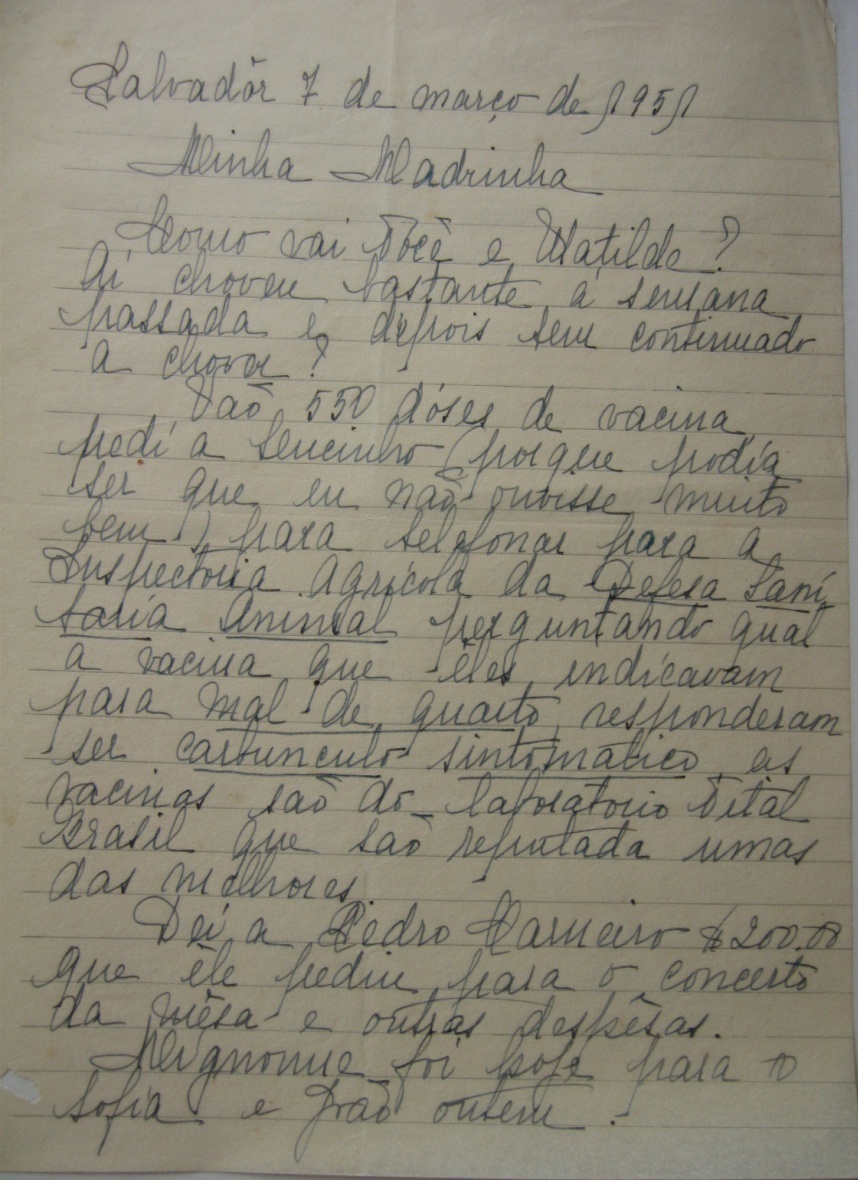 Salvadôr 7 de março de 1951
Minha Madrinha
Como vai Você e Matilde?
Aí choveu bastante a semana
passada e depois tem continuado
a chover?
Vaõ 550 dóses de vacina,
pedí a (porque podía
ser que eu naõ ouvisse muito
bem) para telefonar para a
Inspectoria Agrícola da Defesa Sani
taria Animal perguntando qual
a vacina que êles indícavam
para mal de quarto, responderam
ser carbunculo sintomatico, as
vacinas saõ do Laboratorio Vital
Brasil que saõ reputada umas
das melhores.
Deí a Pedro Carneiro $200.00
que êle pediu para o concerto
da mêsa e outras despêsas.
Mignonne foí hoje para o
Sofia e Joaõ ontem.